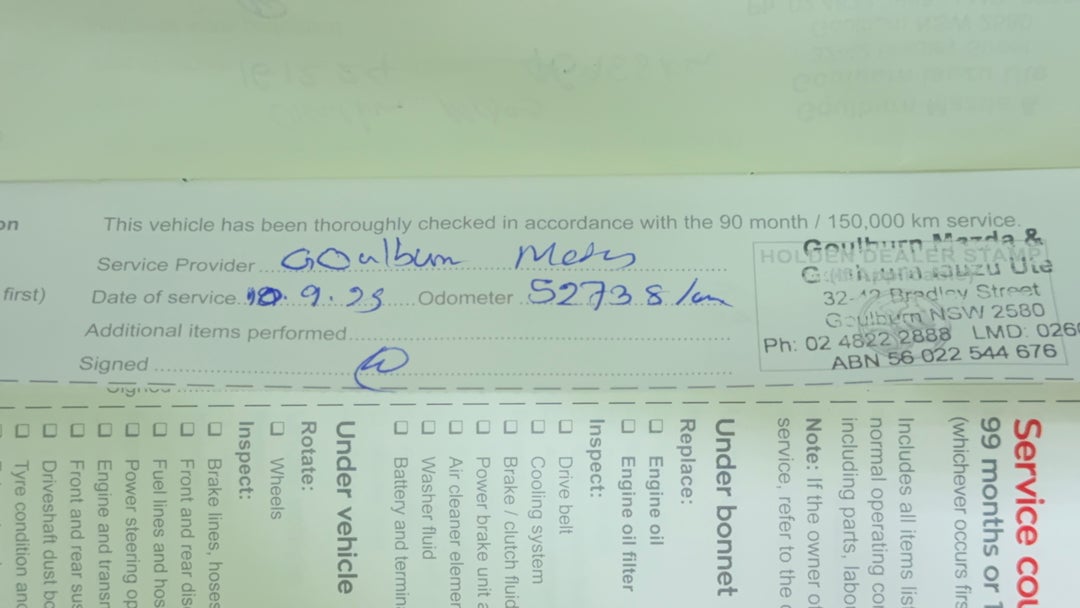 on
This vehicle has been thoroughly checked in accordance with the 90 month / 150,000 km service.
Service Provider Goulburn
first)
Date of service 9. Odometer 52738 km
Additional items performed
Signed
HOLDEN DEALER STAMP
Goulburn Mazda &
32-42 Bradley Street
Goulburn NSW 2580
Ph: 02 4822 2888 LMD: 0268
ABN 56 022 544 676
Service cou
99 months or 1
(whichever occurs firs
Includes all items list
normal operating co
including parts, labo
Note: If the owner of
service, refer to the
Under bonnet
Replace:
Engine oil
Engine oil filter
Inspect:
Drive belt
Cooling system
Brake / clutch fluid
Power brake unit a
Air cleaner elemen
Washer fluid
Battery and termin
Under vehicle
Rotate:
Wheels
Inspect:
Brake lines, hoses
Front and rear dis
Fuel lines and hos
Power steering op
Engine and transm
Front and rear sus
Driveshaft dust bo
Tyre condition and